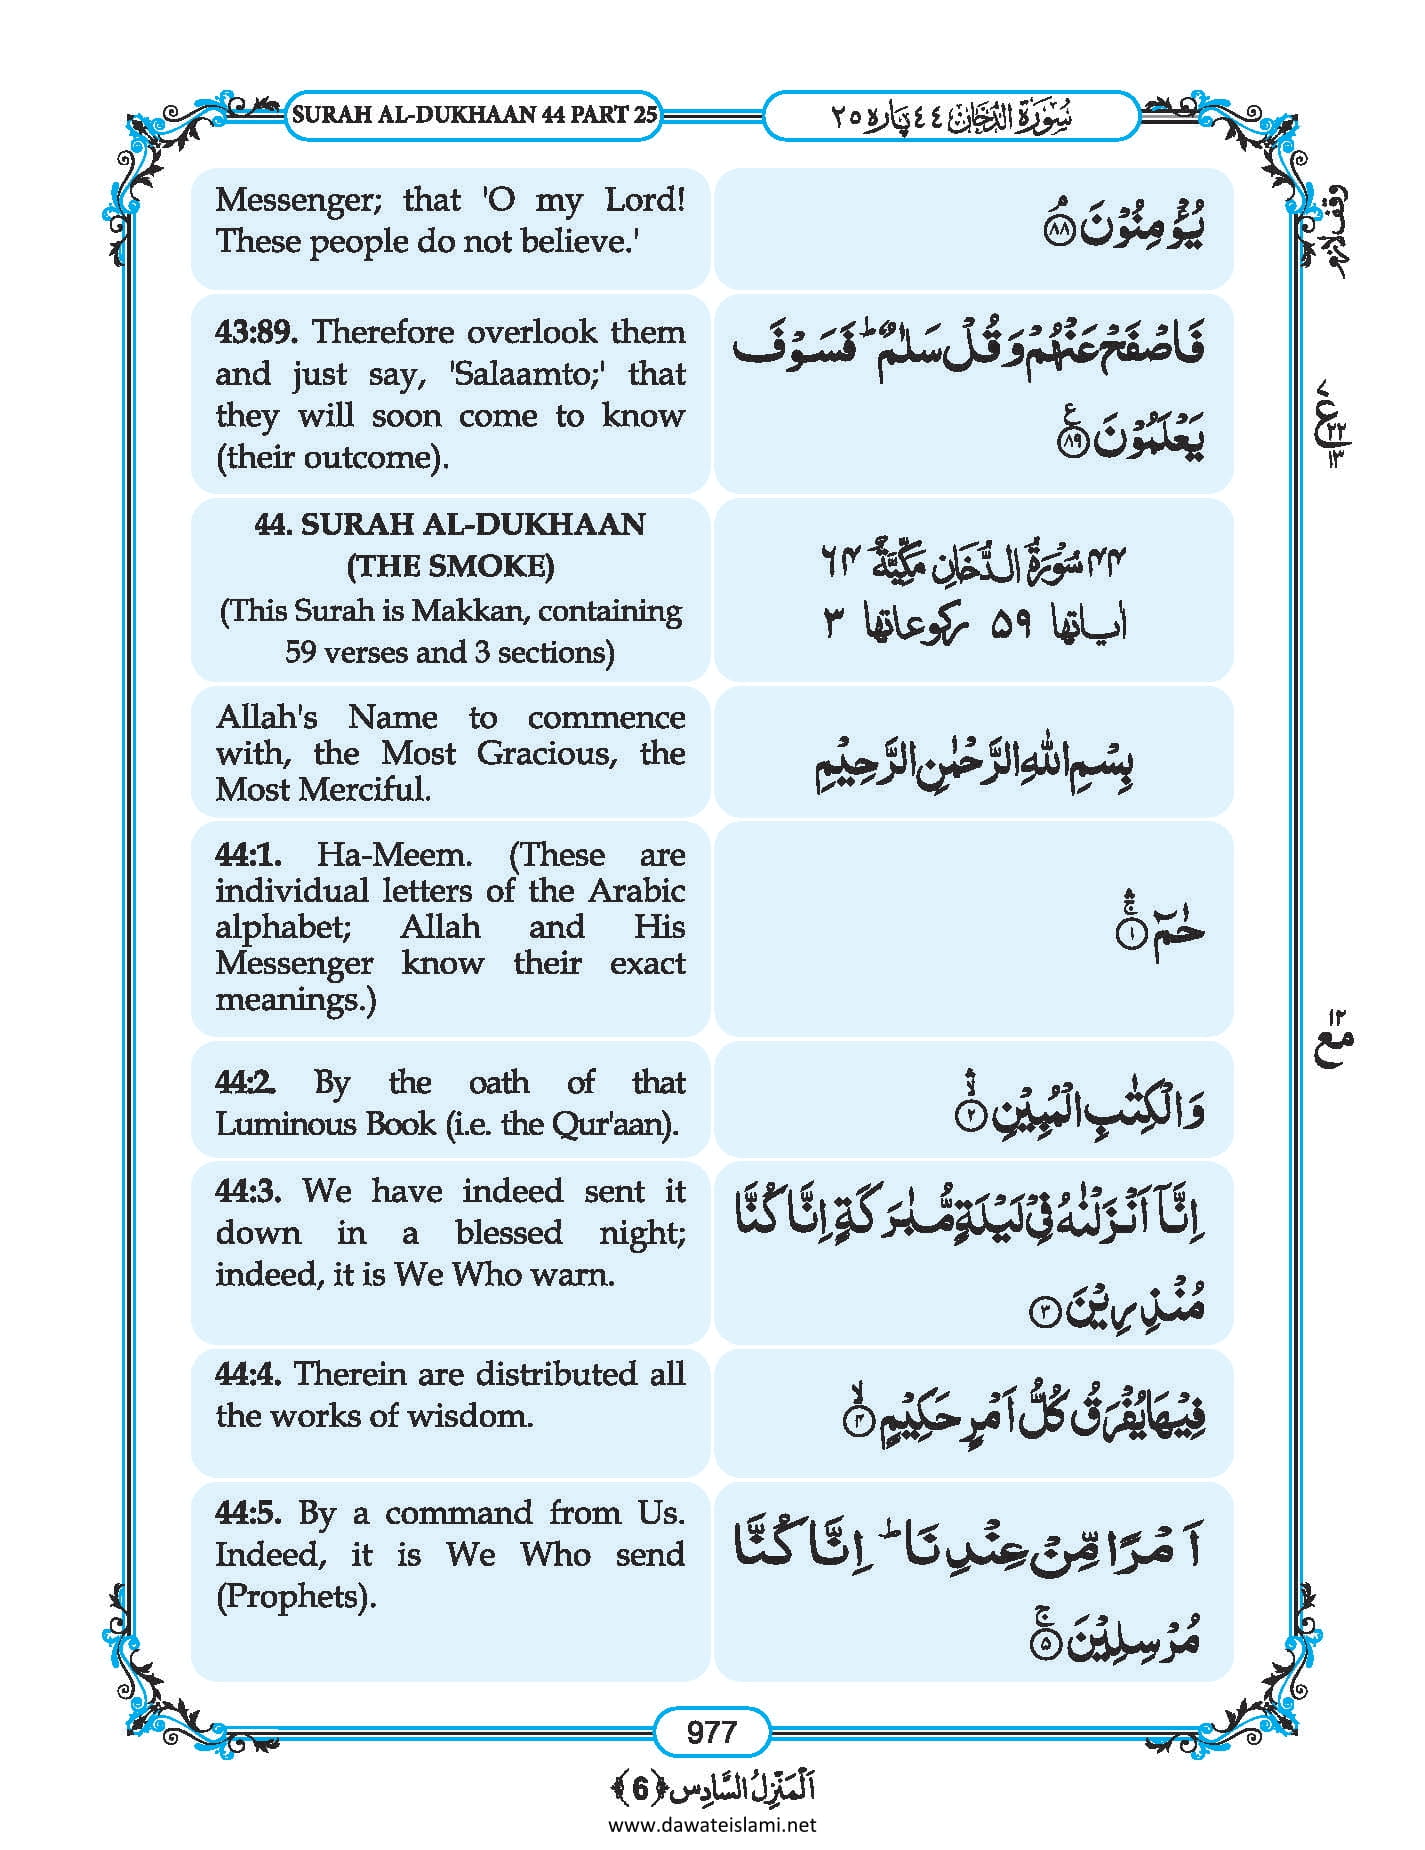 SURAH AL-DUKHAAN 44 PART 25
سُوۡرَۃُ الدُّخَان ٤٤ پارہ ٢٥
Messenger; that 'O my Lord!
These people do not believe.'
یُؤۡمِنُوۡنَ ﴿۸۸﴾ۘ
وقف لازم
43:89. Therefore overlook them
and just say, 'Salaamto;' that
they will soon come to know
(their outcome).
فَاصۡفَحۡ عَنۡہُمۡ وَ قُلۡ سَلٰمٌ ؕ فَسَوۡفَ
یَعۡلَمُوۡنَ ﴿۸۹﴾٪
٧
ع
٢٢
١٣
44. SURAH AL-DUKHAAN
(THE SMOKE)
(This Surah is Makkan, containing
59 verses and 3 sections)
۴۴ سُوۡرَۃُ الدُّخَانِ مَکِّیَّۃٌ ۶۴
اٰیاتہا ۵۹ رکوعاتہا ۳
Allah's Name to commence
with, the Most Gracious, the
Most Merciful.
بِسۡمِ اللہِ الرَّحۡمٰنِ الرَّحِیۡمِ
44:1. Ha-Meem. (These are
individual letters of the Arabic
alphabet; Allah and His
Messenger know their exact
meanings.)
حٰمٓ ﴿۱﴾ۚۛ
١٢
مع
44:2. By the oath of that
Luminous Book (i.e. the Qur'aan).
وَ الۡکِتٰبِ الۡمُبِیۡنِ ﴿۲﴾ۙۛ
44:3. We have indeed sent it
down in a blessed night;
indeed, it is We Who warn.
اِنَّاۤ اَنۡزَلۡنٰہُ فِیۡ لَیۡلَۃٍ مُّبٰرَکَۃٍ اِنَّا کُنَّا
مُنۡذِرِیۡنَ ﴿۳﴾
44:4. Therein are distributed all
the works of wisdom.
فِیۡہَا یُفۡرَقُ کُلُّ اَمۡرٍ حَکِیۡمٍ ﴿۴﴾ۙ
44:5. By a command from Us.
Indeed, it is We Who send
(Prophets).
اَمۡرًا مِّنۡ عِنۡدِنَا ؕ اِنَّا کُنَّا
مُرۡسِلِیۡنَ ﴿۵﴾ۚ
977
اَلۡمَنۡزِلُ السَّادِس ﴿6﴾
www.dawateislami.net